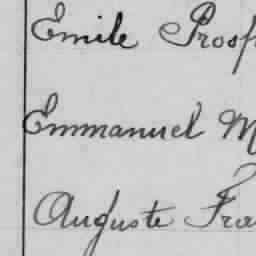 Emile Prosp
Emmanuel M
Auguste Fra